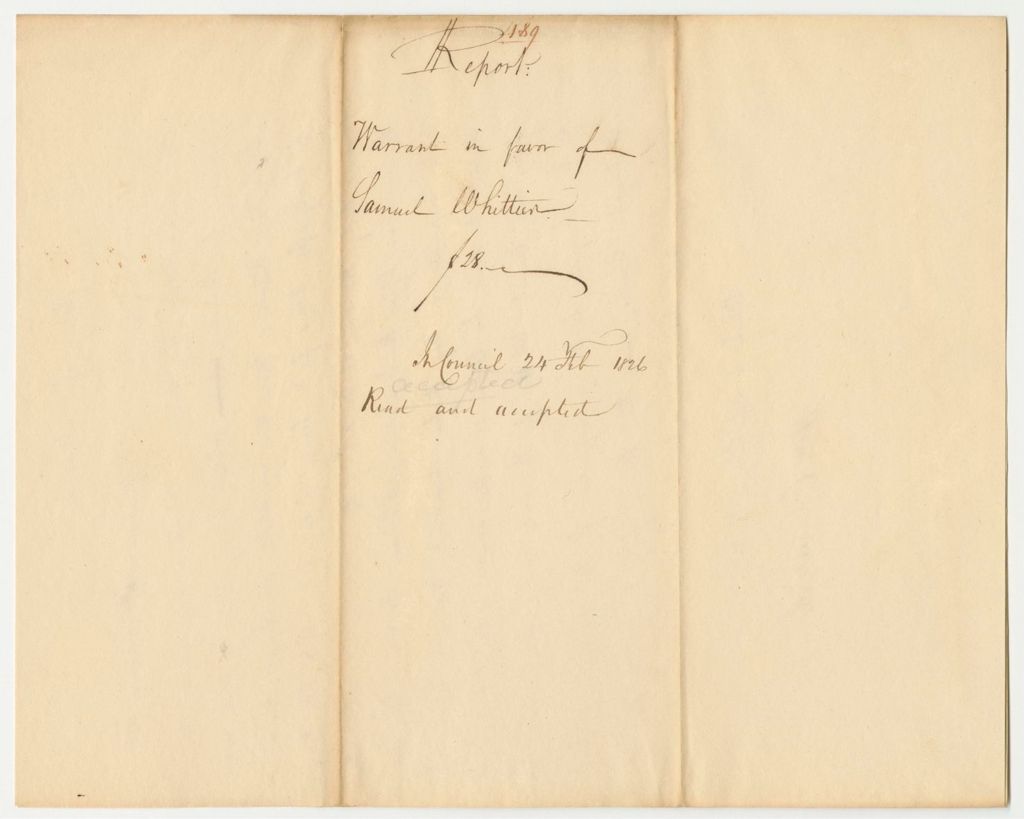 189
Report.
Warrant in favor of
Samuel Whittier
$28.
In Council 24 Feb 1826
accepted
Read and accepted